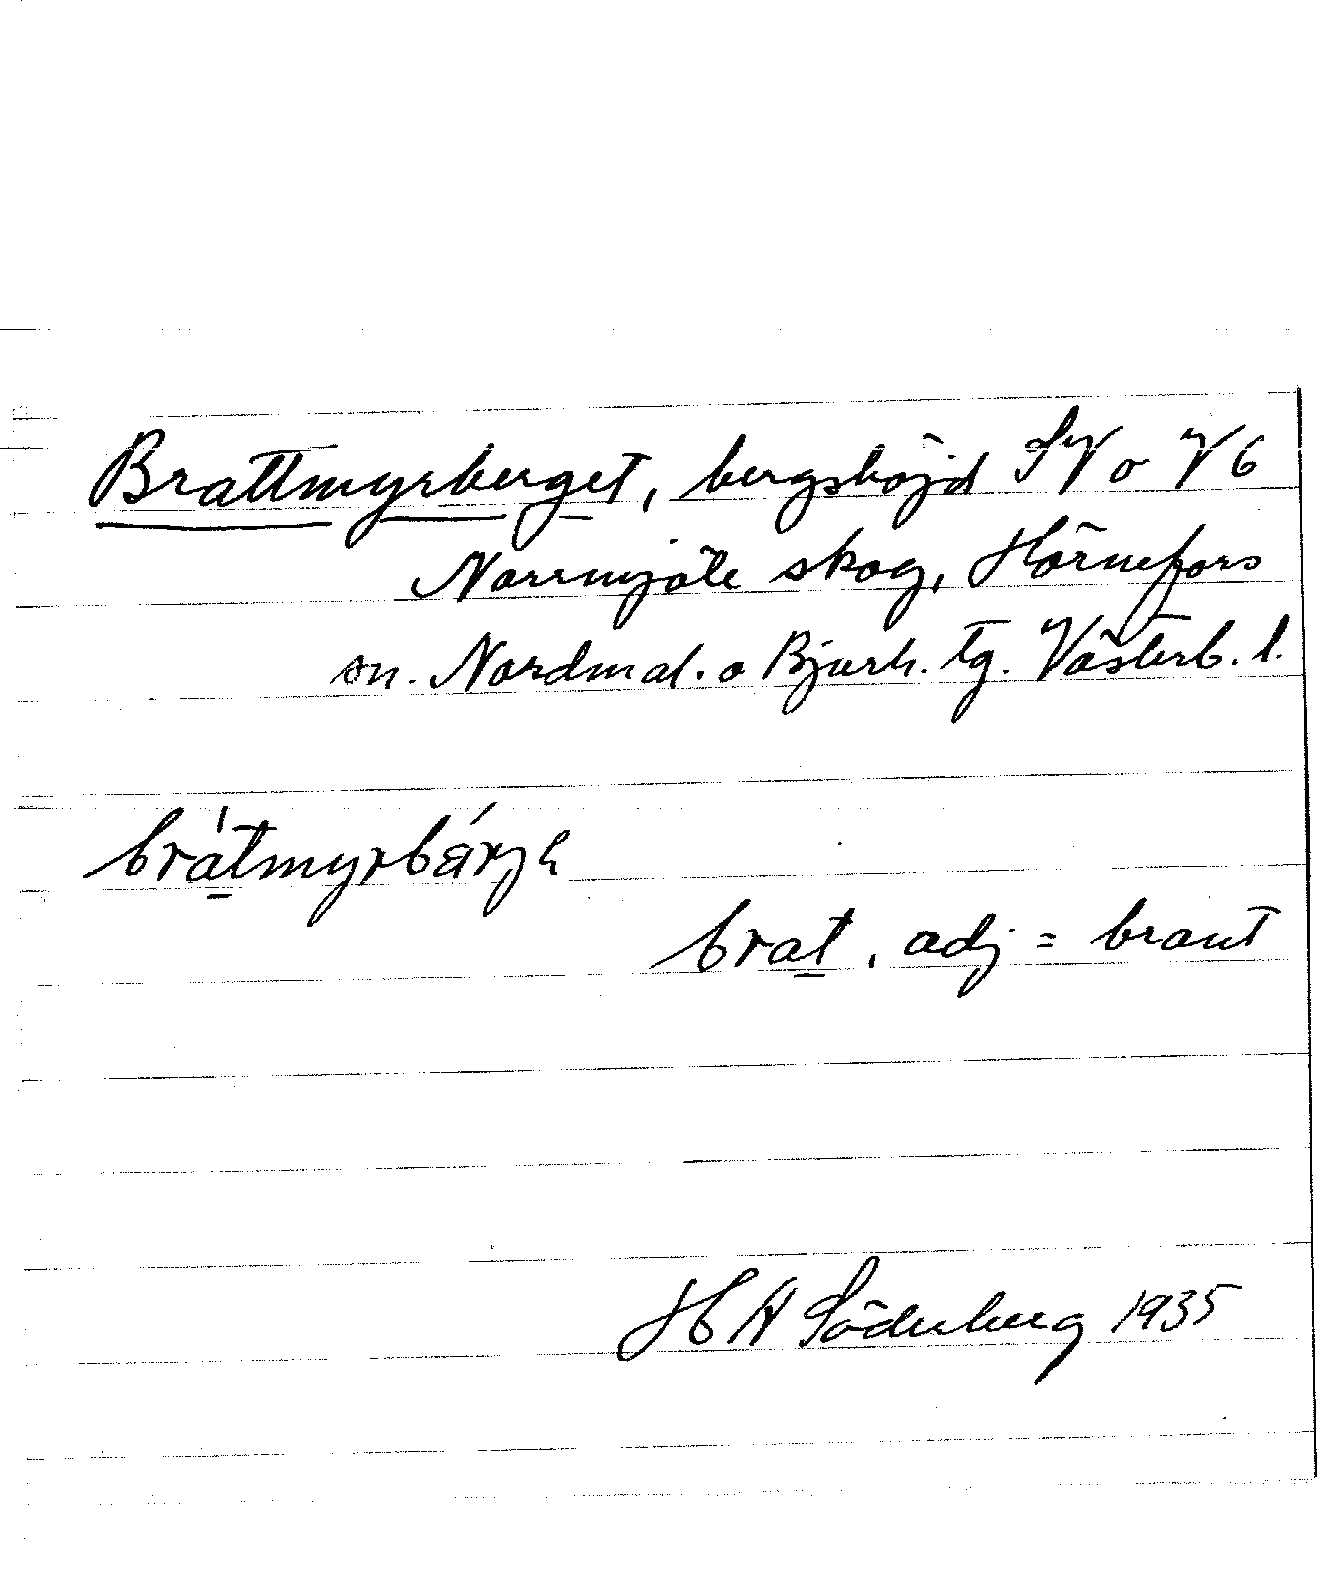 Brattmyrberget, bergshöjd SV o V 6
Norrmjöle skog, Hörnefors
sn. Nordmal. o Bjurh. tg. Västerb. l.
brátmyrbárjə
brat, adj = brant
H A Söderberg 1935